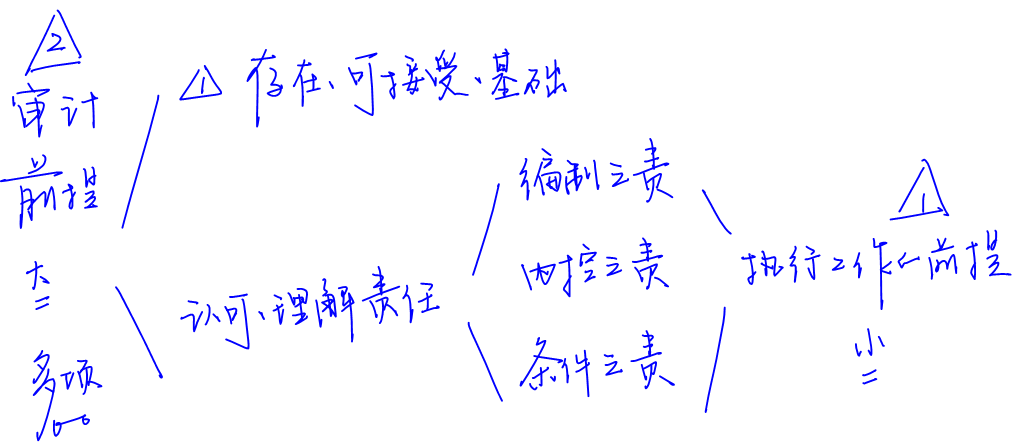 2
审计
前提
大
多项
1 存在、可接受、基础
认可、理解责任
编制之责
内控之责
条件之责
1
执行工作←前提
小